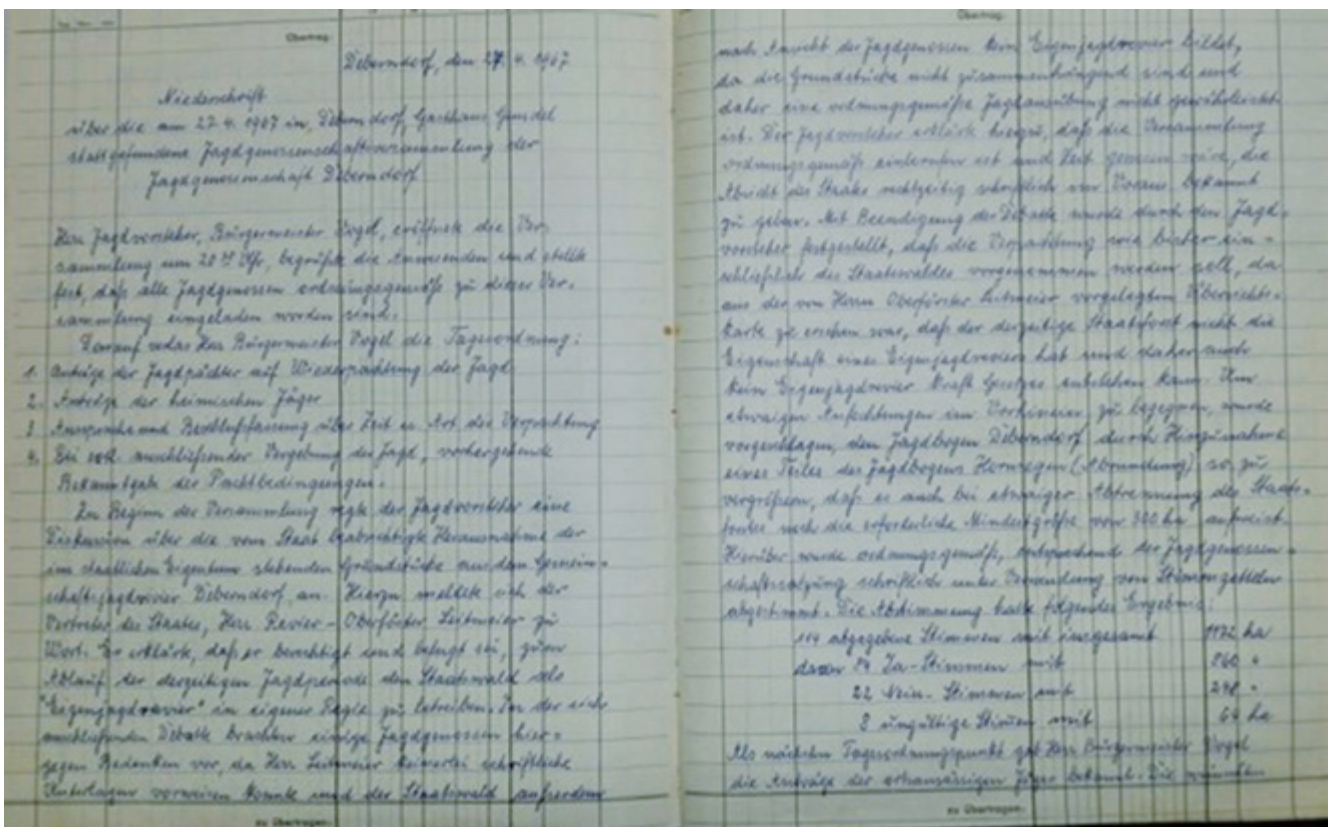 Übertrag:
Deberndorf, den 27. 4. 1967
Niederschrift
über die am 27.4.1967 in, Debern dorf, Gasthaus Gundel
stattgefundene Jagdgenossenschaftsversammlung der
Jagdgenossenschaft Deberndorf.
Herr Jagdvorsteher, Bürgermeister Vogel, eröffnete die Ver-
sammlung um 20 Uhr, begrüßte die Anwesenden und stellte
fest, daß alle Jagdgenossen ordnungsgemäß zu dieser Ver-
sammlung eingeladen worden sind.
Darauf verlas Herr Bürgermeister Vogel die Tagesordnung:
1. Anträge der Jagdpächter auf Wiederpachtung der Jagd
2. Anträge der heimischen Jäger
3. Aussprache und Beschlußfassung über Zeit u. Art der Verpachtung
4. Bei evtl. anschließender Vergebung der Jagd, vorhergehende
Bekanntgabe der Pachtbedingungen.
Zu Beginn der Versammlung regte der Jagdvorsteher eine
Diskussion über die vom Staat beabsichtigte Herausnahme der
im staatlichen Eigentum stehenden Grundstücke aus dem Gemein-
schaftsjagdrevier Deberndorf an. Hierzu meldete sich der
Vertreter des Staates, Herr Revier-Oberförster Leitmeier zu
Wort. Er erklärte, daß er berechtigt und befugt sei, zum
Ablauf der derzeitigen Jagdperiode den Staatswald als
"Eigenjagdrevier" in eigener Regie zu betreiben. In der sich
anschließenden Debatte brachten einige Jagdgenossen hier-
gegen Bedenken vor, da Herr Leitmeier keinerlei schriftliche
Unterlagen vorweisen konnte und der Staatswald außerdem
zu übertragen:
Übertrag:
nach Ansicht der Jagdgenossen kein Eigenjagdrevier bildet,
da die Grundstücke nicht zusammenhängend sind und
daher eine ordnungsgemäße Jagdausübung nicht gewährleistet
ist. Der Jagdvorsteher erklärte hiezu, daß die Versammlung
ordnungsgemäß einberufen ist und Zeit gewesen wäre, die
Absicht des Staates rechtzeitig schriftlich im Voraus bekannt
zu geben. Mit Beendigung der Debatte wurde durch den Jagd-
vorsteher festgestellt, daß die Verpachtung wie bisher ein-
schließlich des Staatswaldes vorgenommen werden soll, da
aus der von Herrn Oberförster Leitmeier vorgelegten Übersichts-
karte zu ersehen war, daß der derzeitige Staatsforst nicht die
Eigenschaft eines Eigenjagdreviers hat und daher auch
kein Eigenjagdrevier kraft Gesetzes entstehen kann. Um
etwaigen Anfechtungen im Vorhinein zu begegnen, wurde
vorgeschlagen, den Jagdbogen Deberndorf durch Hinzunahme
eines Teiles des Jagdbogens (Abrundung) so zu
vergrößern, daß er auch bei etwaiger Abtrennung des Staats-
forstes noch die erforderliche Mindestgröße von 300 ha aufweist.
Hierüber wurde ordnungsgemäß, entsprechend der Jagdgenossen-
schaftssatzung schriftlich unter Verwendung von Stimmzetteln
abgestimmt. Die Abstimmung hatte folgendes Ergebnis:
114 abgegebene Stimmen mit insgesamt 1172 ha
davon 84 Ja-Stimmen mit 860 "
22 Nein-Stimmen mit 248 "
8 ungültige Stimmen mit 64 ha
Als nächsten Tagesordnungspunkt gab Herr Bürgermeister Vogel
die Anträge der ortsansässigen Jäger bekannt. Die wünschten
zu übertragen: